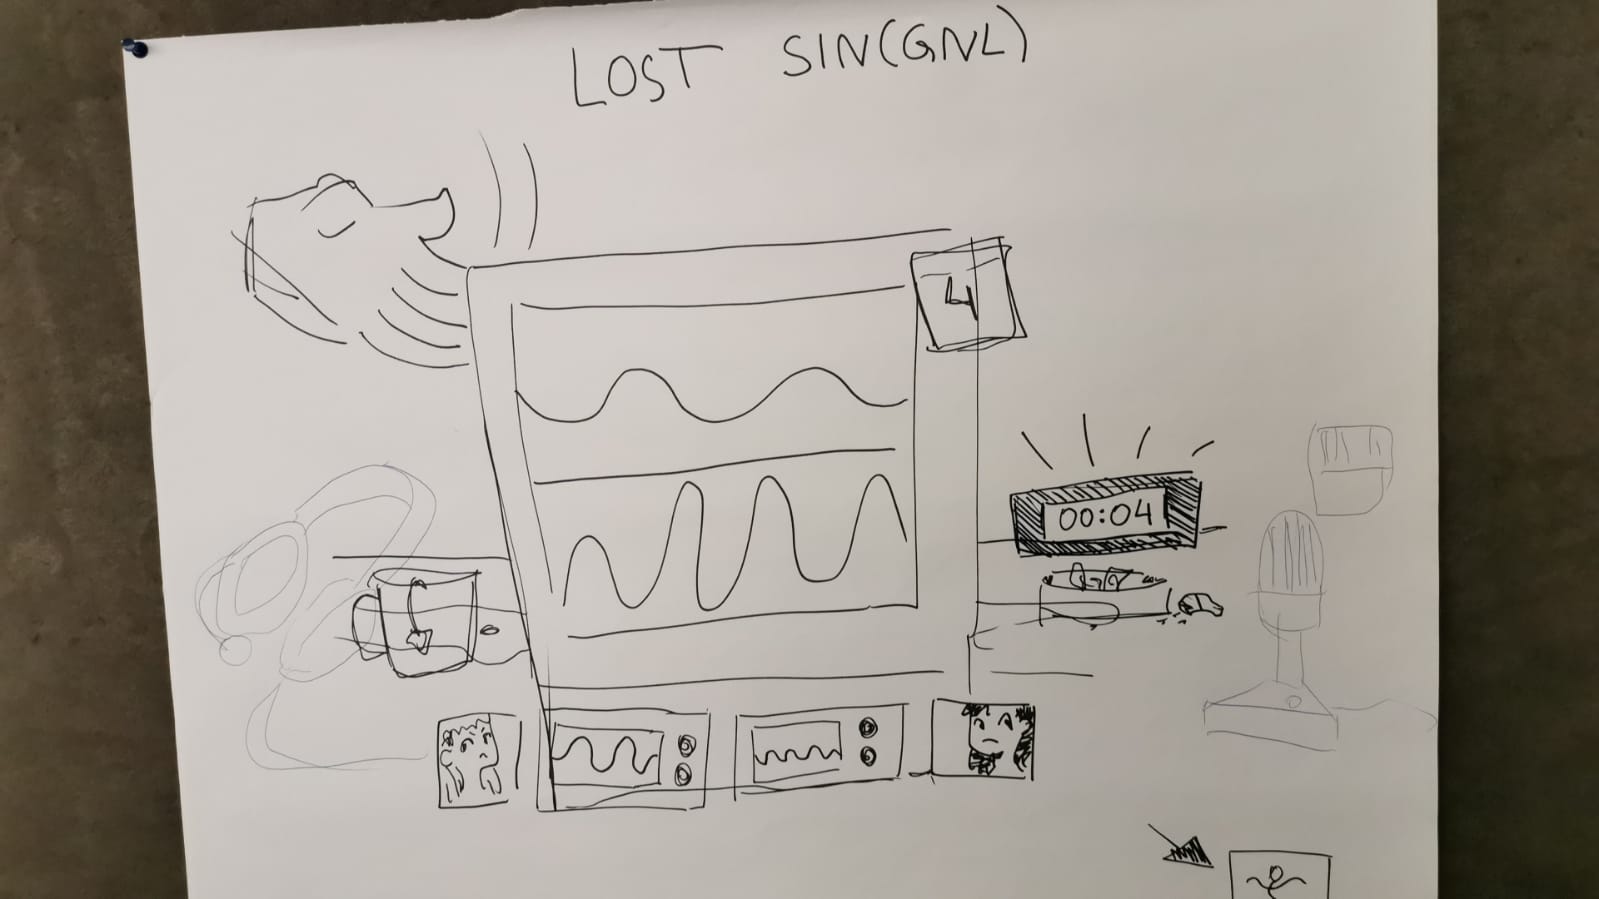 LOST SIN(GNL)
4
00:04